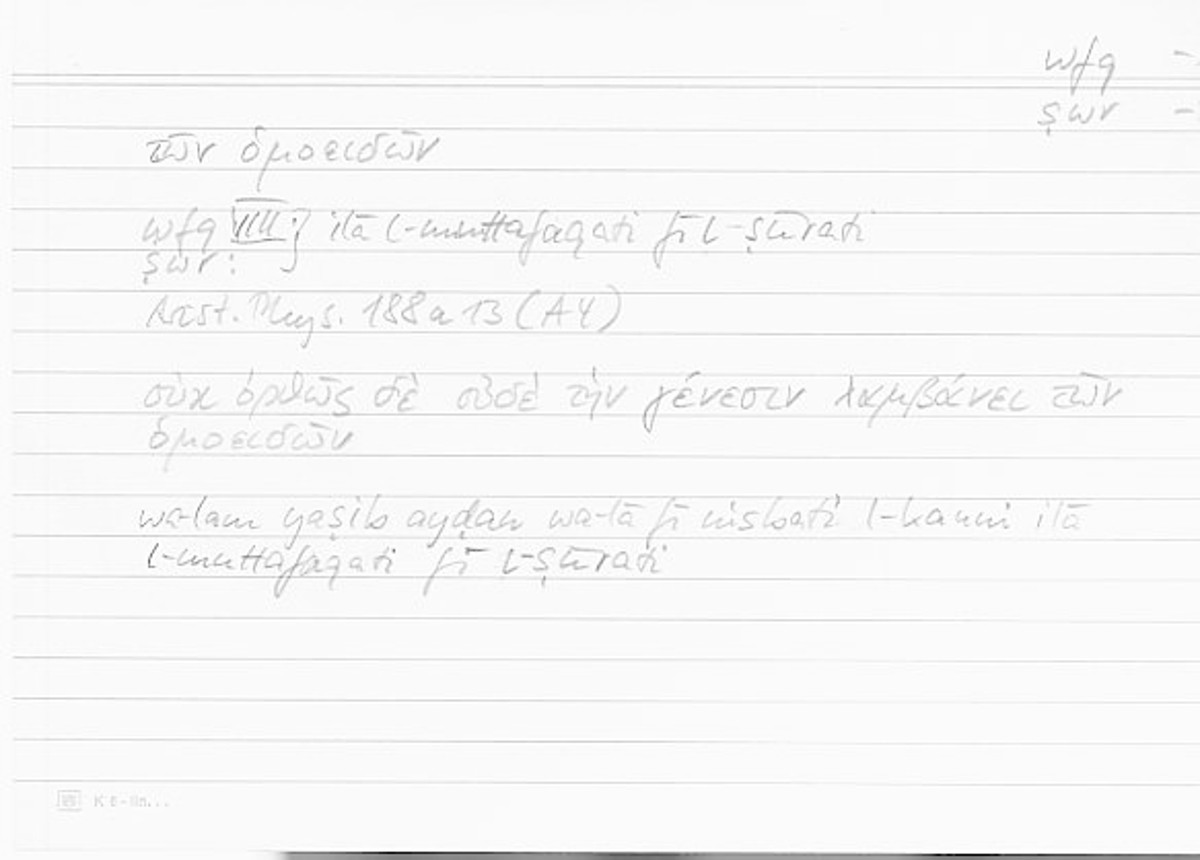 wfq -
ṣwr -
τῶν ὁμοειδῶν
wfq VIII: } ilā l-muttafaqati fī l-ṣūrati
ṣwr:
Arist. Phys. 188a 13 (A4)
οὐκ ὀρθῶς δὲ οὐδὲ τὴν γένεσιν λαμβάνει τῶν
ὁμοειδῶν
wa-lam yaṣib ayḍan wa-lā fī nisbati l-kauni ilā
l-muttafaqati fī l-ṣūrati